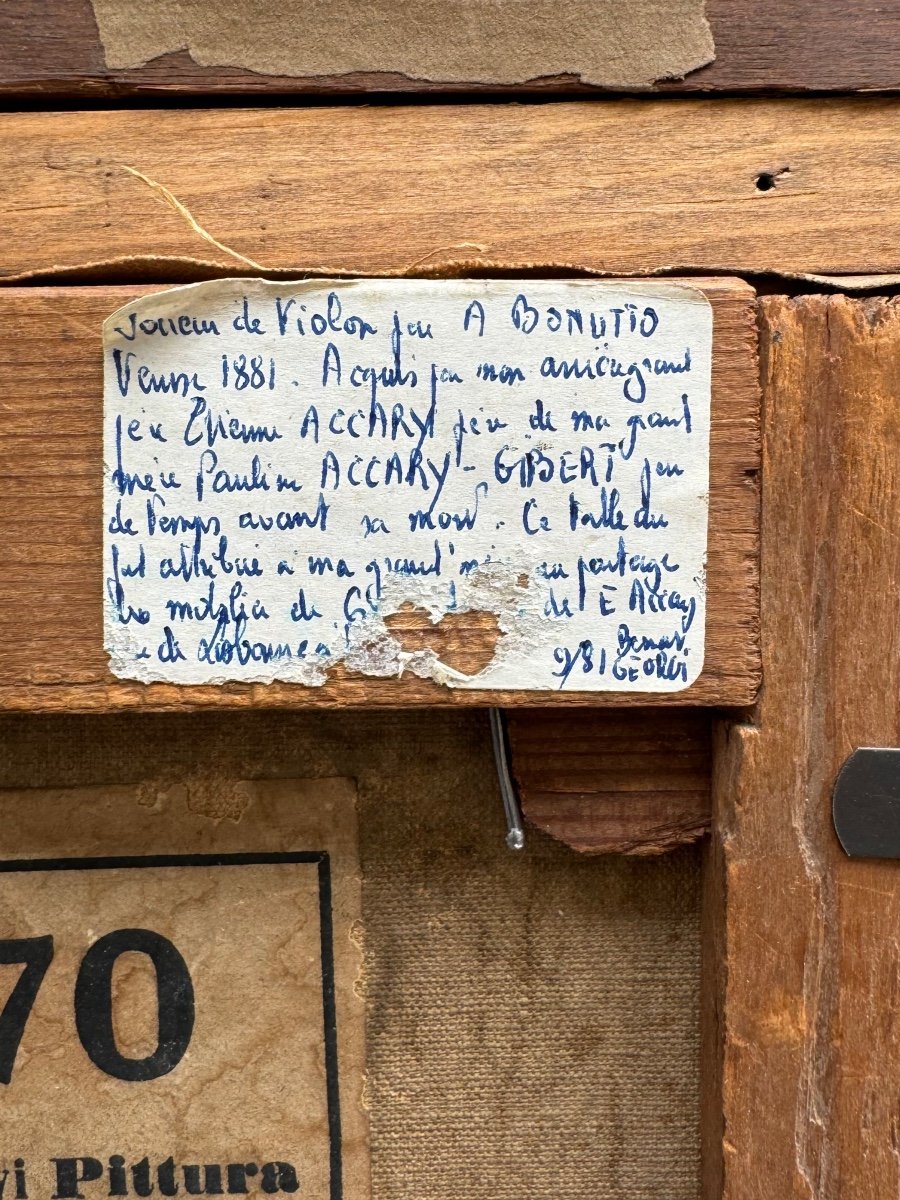 Joueur de Violon par A BONUTIO
Venise 1881. Acquis par mon arrière grand
père Etienne ACCARY père de ma grand
mère Pauline ACCARY-GIBERT peu
de temps avant sa mort. Ce tableau
fut attribué à ma grand'mère au partage
du mobilier de de E Accary
de
9/81 Bernard
GEORGI
70
vi Pittura